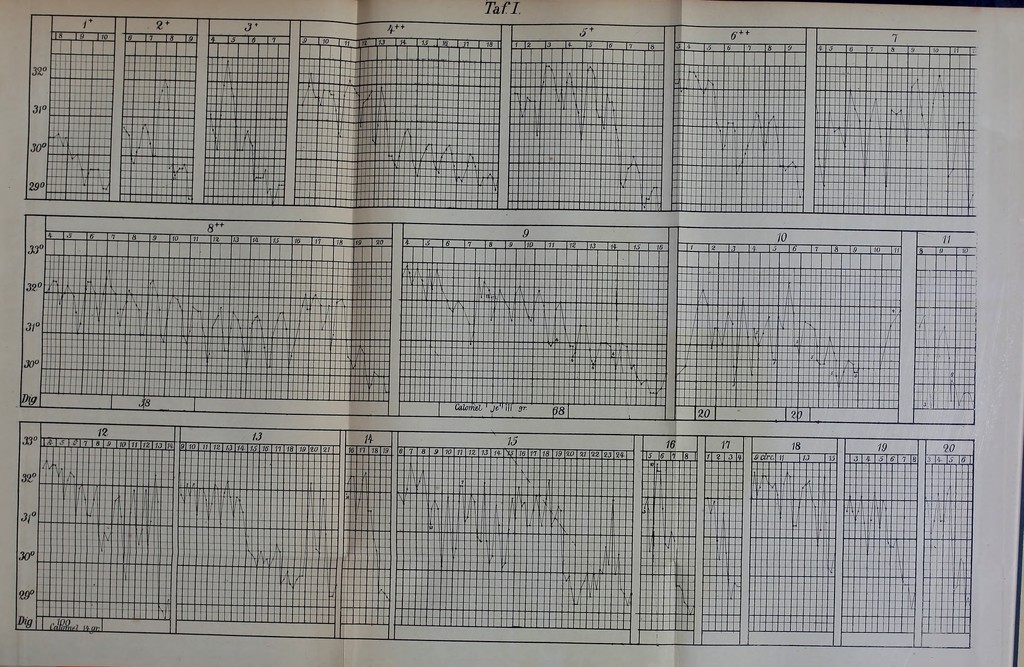 Taf. I.
1+ 2+ 3+ 4++ 5+ 6++ 7
8 9 10 6 7 8 9 4 5 6 7 9 10 11 12 13 14 15 16 17 18 1 2 3 4 5 6 7 8 3 4 5 6 7 8 9 4 5 6 7 8 9 10 11
32°
31°
30°
29°
8++ 9 10 11
4 5 6 7 8 9 10 11 12 13 14 15 16 17 18 19 20 4 5 6 7 8 9 10 11 12 13 14 15 16 1 2 3 4 5 6 7 8 9 10 11 8 9 10
33°
32°
31°
30°
Dig 38 Calomel je III gr. 68 20 20
12 13 14 15 16 17 18 19 20
4 5 6 7 8 9 10 11 12 13 14 9 10 11 12 13 14 15 16 17 18 19 20 21 16 17 18 19 6 7 8 9 10 11 12 13 14 15 16 17 18 19 20 21 22 23 24 5 6 7 8 1 2 3 4 9 11 13 15 3 4 5 6 7 8 3 4 5 6
33°
32°
31°
30°
29°
Dig 100
Calomel 14 gr.